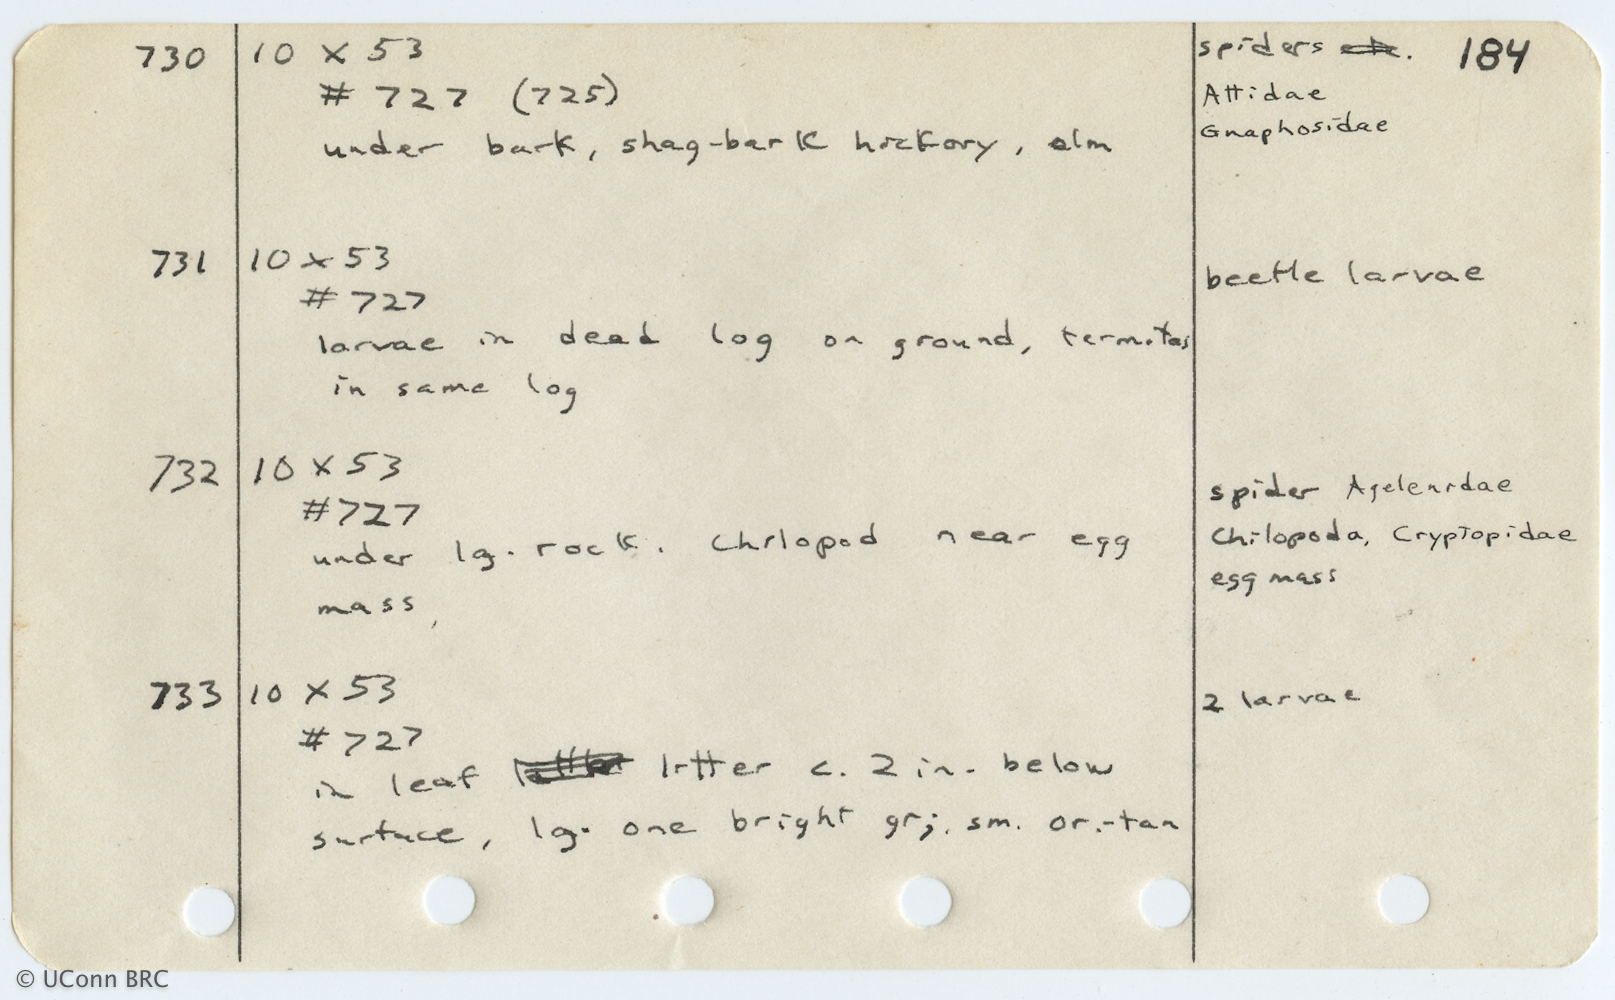 184
730 10 X 53 spiders
# 727 (725) Attidae
under bark, shag-bark hickory, elm Gnaphosidae
731 10 X 53 beetle larvae
# 727
larvae in dead log on ground, termites
in same log
732 10 X 53 spider Agelenidae
#727
under lg. rock. Chilopod near egg Chilopoda, Cryptopidae
mass, egg mass
733 10 X 53 2 larvae
# 727
in leaf litter c. 2 in. below
surface, lg. one bright gr; sm. or.-tan
© UConn BRC